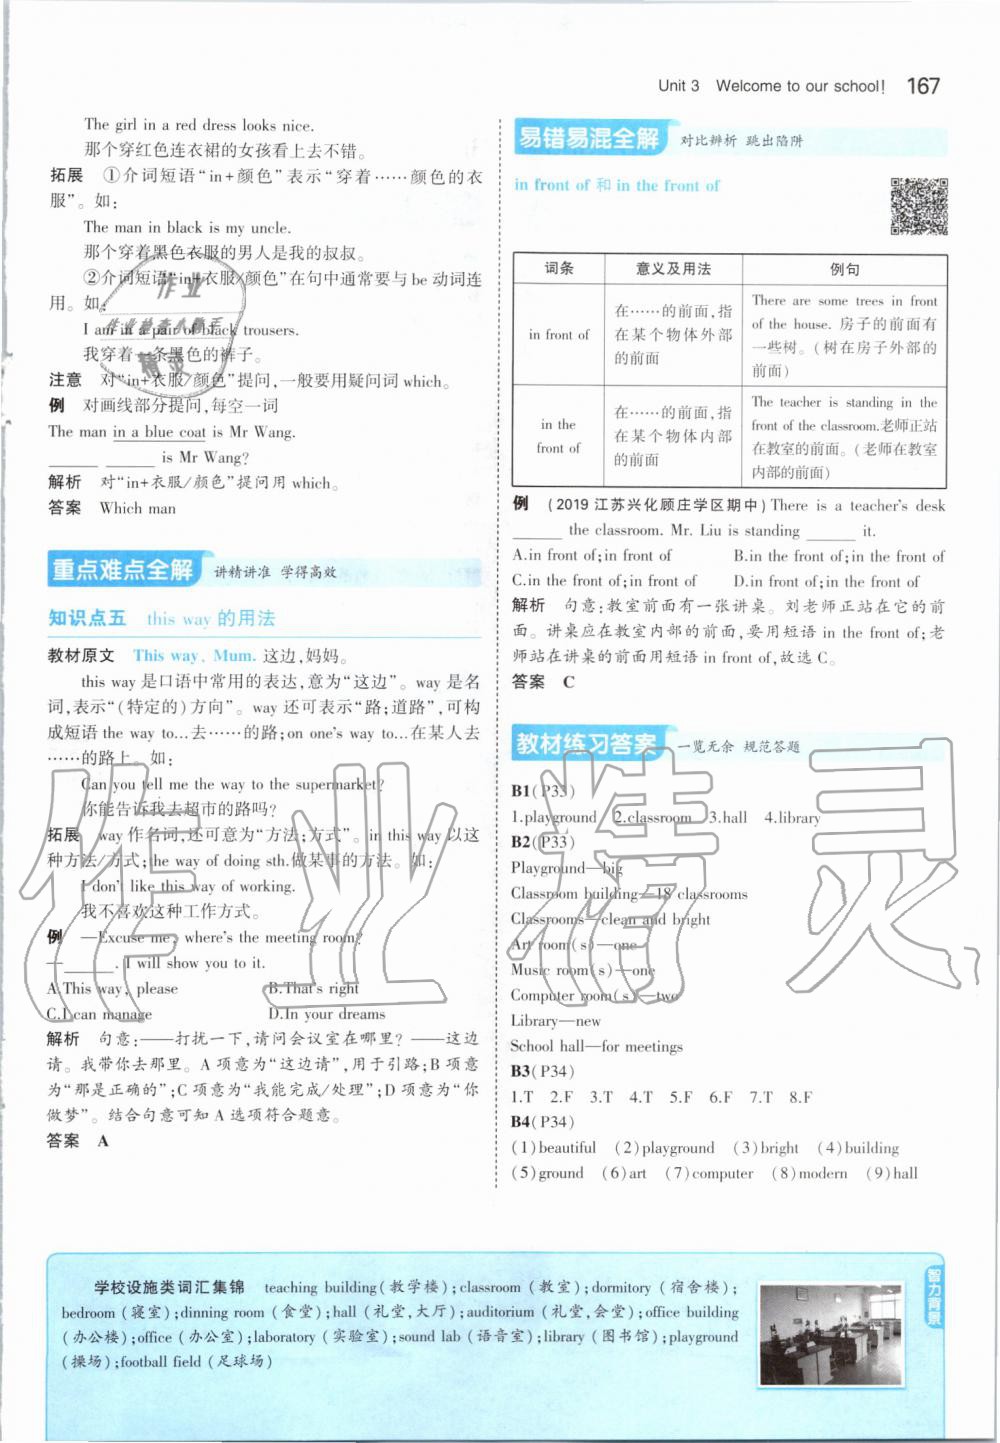 Unit 3 Welcome to our school! 167
The girl in a red dress looks nice.
那个穿红色连衣裙的女孩看上去不错。
拓展 ①介词短语“in+颜色”表示“穿着……颜色的衣
服”。如:
The man in black is my uncle.
那个穿着黑色衣服的男人是我的叔叔。
②介词短语“in+衣服/颜色”在句中通常要与 be 动词连
用。如:
I am in a pair of black trousers.
我穿着一条黑色的裤子。
注意 对“in+衣服/颜色”提问,一般要用疑问词 which。
例 对画线部分提问,每空一词
The man in a blue coat is Mr Wang.
______ ______ is Mr Wang?
解析 对“in+衣服/颜色”提问用 which。
答案 Which man
重点难点全解 讲精讲准 学得高效
知识点五 this way 的用法
教材原文 This way, Mum. 这边,妈妈。
this way 是口语中常用的表达,意为“这边”。way 是名
词,表示“(特定的)方向”。way 还可表示“路;道路”,可构
成短语 the way to…去……的路;on one's way to…在某人去
……的路上。如:
Can you tell me the way to the supermarket?
你能告诉我去超市的路吗?
拓展 way 作名词,还可意为“方法;方式”。in this way 以这
种方法/方式;the way of doing sth.做某事的方法。如:
I don't like this way of working.
我不喜欢这种工作方式。
例 —Excuse me, where's the meeting room?
—______. I will show you to it.
A.This way, please B.That's right
C.I can manage D.In your dreams
解析 句意:——打扰一下,请问会议室在哪里?——这边
请。我带你去那里。A 项意为“这边请”,用于引路;B 项意
为“那是正确的”;C 项意为“我能完成/处理”;D 项意为“你
做梦”。结合句意可知 A 选项符合题意。
答案 A
易错易混全解 对比辨析 跳出陷阱
in front of 和 in the front of
词条 意义及用法 例句
in front of
在……的前面,指
在某个物体外部
的前面
There are some trees in front
of the house. 房子的前面有
一些树。(树在房子外部的
前面)
in the
front of
在……的前面,指
在某个物体内部
的前面
The teacher is standing in the
front of the classroom.老师正站
在教室的前面。(老师在教室
内部的前面)
例 (2019 江苏兴化顾庄学区期中)There is a teacher's desk
______ the classroom. Mr. Liu is standing ______ it.
A.in front of;in front of B.in the front of;in the front of
C.in the front of;in front of D.in front of;in the front of
解析 句意:教室前面有一张讲桌。刘老师正站在它的前
面。讲桌应在教室内部的前面,要用短语 in the front of;老
师站在讲桌的前面用短语 in front of,故选 C。
答案 C
教材练习答案 一览无余 规范答题
B1(P33)
1.playground 2.classroom 3.hall 4.library
B2(P33)
Playground—big
Classroom building—18 classrooms
Classrooms—clean and bright
Art room(s)—one
Music room(s)—one
Computer room(s)—two
Library—new
School hall—for meetings
B3(P34)
1.T 2.F 3.T 4.T 5.F 6.F 7.T 8.F
B4(P34)
(1)beautiful (2)playground (3)bright (4)building
(5)ground (6)art (7)computer (8)modern (9)hall
学校设施类词汇集锦 teaching building(教学楼);classroom(教室);dormitory(宿舍楼);
bedroom(寝室);dinning room(食堂);hall(礼堂,大厅);auditorium(礼堂,会堂);office building
(办公楼);office(办公室);laboratory(实验室);sound lab(语音室);library(图书馆);playground
(操场);football field(足球场)
智力背景
作业精灵
作业
作业检查小助手
精灵